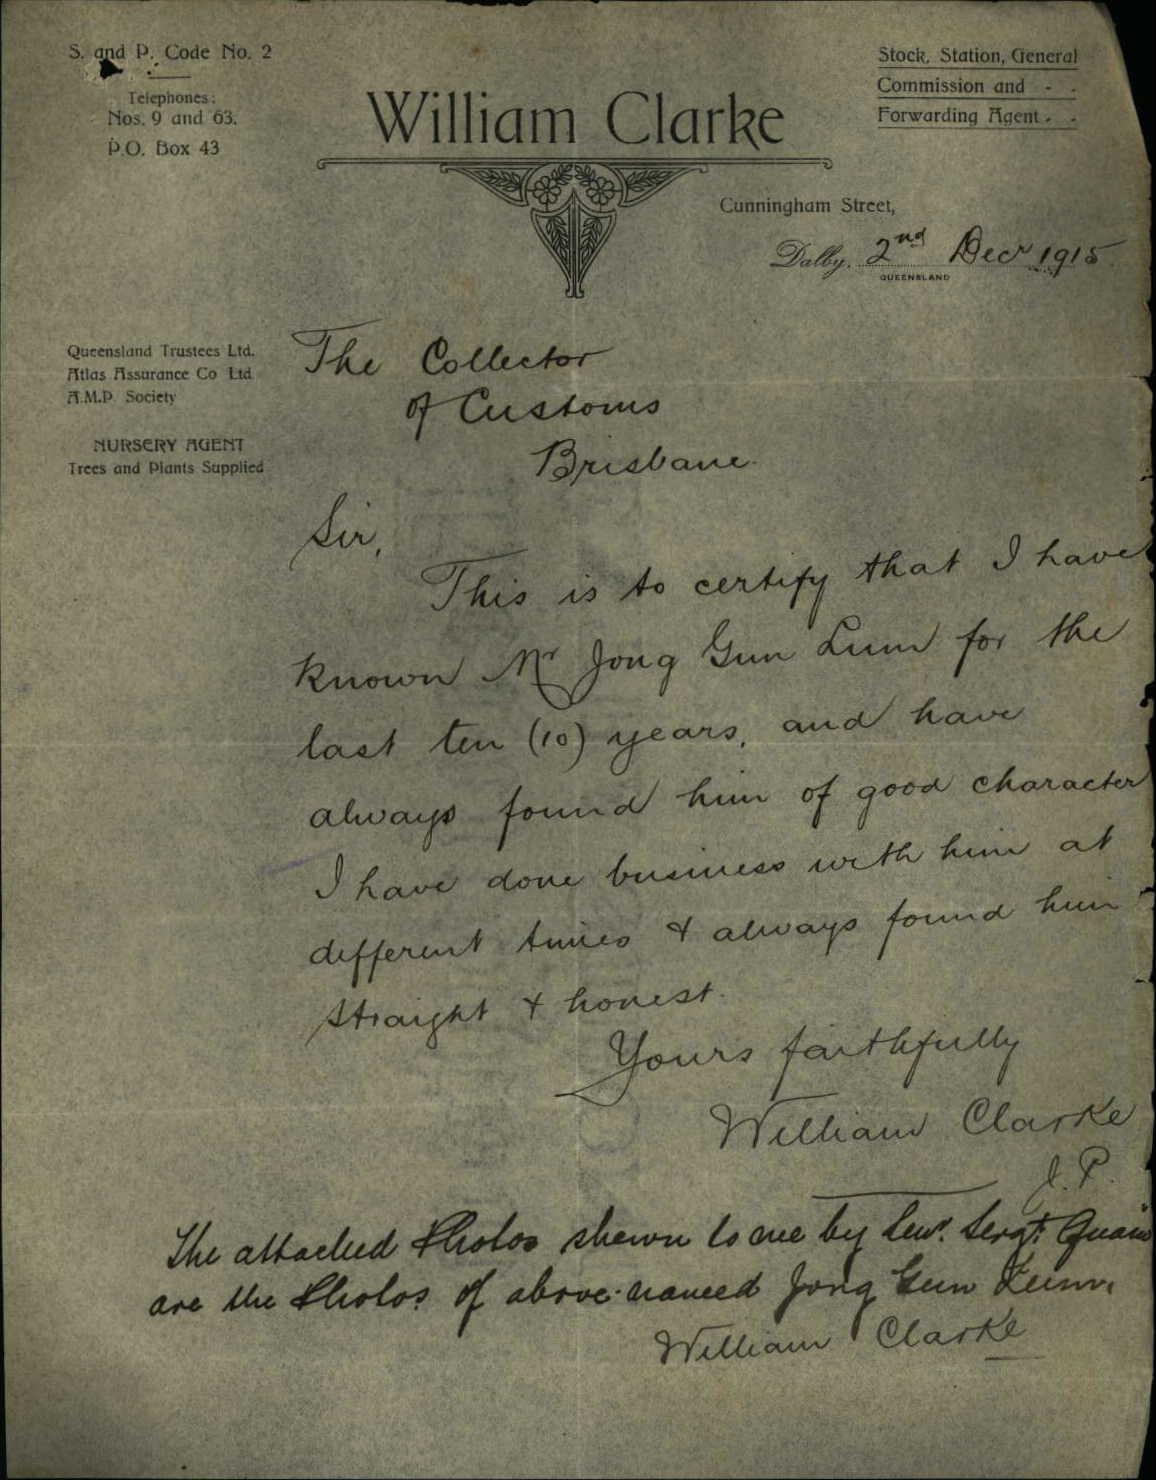 S. and P. Code No. 2
Telephones:
Nos. 9 and 63.
P.O. Box 43
William Clarke
Stock, Station, General
Commission and - -
Forwarding Agent - -
Cunningham Street,
Dalby, 2nd Decr 1915
QUEENSLAND
Queensland Trustees Ltd.
Atlas Assurance Co Ltd
A.M.P. Society
NURSERY AGENT
Trees and Plants Supplied
The Collector
of Customs
Brisbane.
Sir,
This is to certify that I have
known Mr Jong Gun Lum for the
last ten (10) years, and have
always found him of good character
I have done business with him at
different times & always found him
straight & honest.
Yours faithfully
William Clarke
J.P.
The attached Photos shewn to me by Senr. Sergt.
are the Photos of above-named Jong Gun Lum.
William Clarke